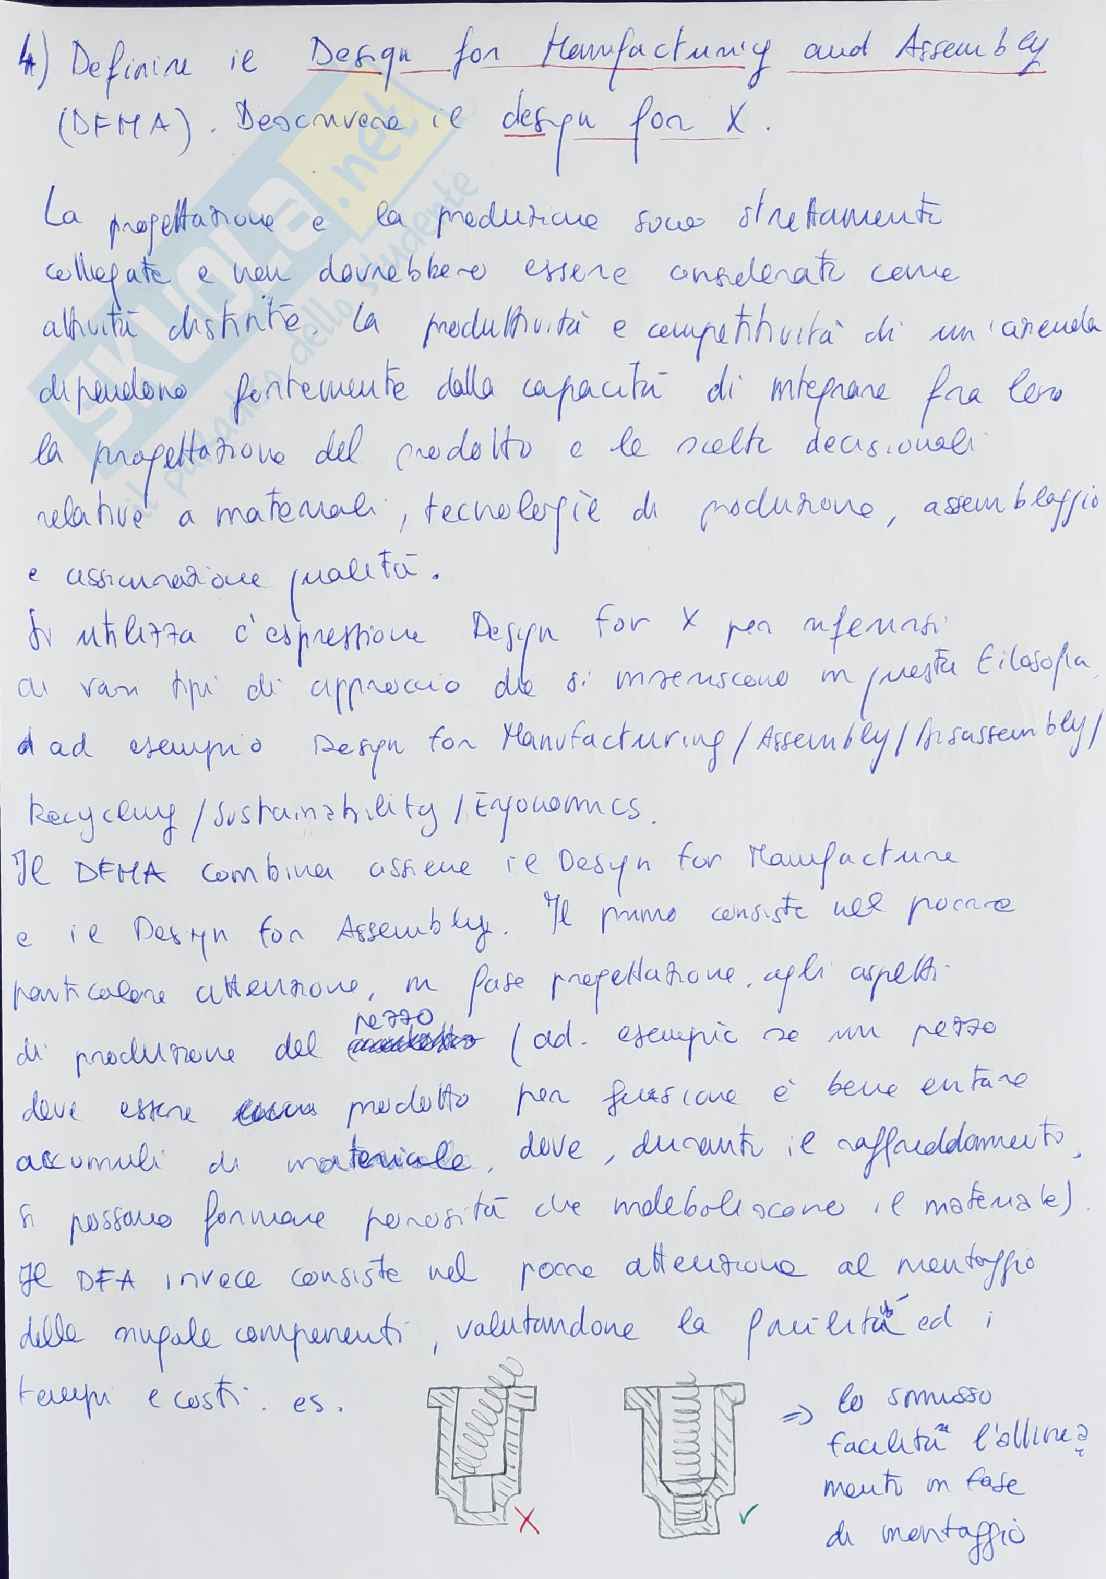 4) Definire il Design for Manufacturing and Assembly
(DFMA). Descrivere il design for X.
La progettazione e la produzione sono strettamente
collegate e non dovrebbero essere considerate come
attività distinte. La produttività e competitività di un'azienda
dipendono fortemente dalla capacità di integrare fra loro
la progettazione del prodotto e le scelte decisionali
relative a materiali, tecnologie di produzione, assemblaggio
e assicurazione qualità.
Si utilizza l'espressione Design for X per riferirsi
ai vari tipi di approccio che si inseriscono in questa filosofia,
ad esempio Design for Manufacturing/Assembly/Disassembly/
Recycling/Sustainability/Ergonomics.
Il DFMA combina assieme il Design for Manufacture
e il Design for Assembly. Il primo consiste nel porre
particolare attenzione, in fase progettazione, agli aspetti
di produzione del pezzo (ad. esempio se un pezzo
deve essere prodotto per fusione è bene evitare
accumuli di materiale, dove, durante il raffreddamento,
si possono formare porosità che indeboliscono il materiale).
Il DFA invece consiste nel porre attenzione al montaggio
delle singole componenti, valutandone la facilità ed i
tempi e costi. es.
X
✓
⇒ lo smusso
facilita l'allinea
mento in fase
di montaggio
SKUOLA.net
il paradiso dello studente